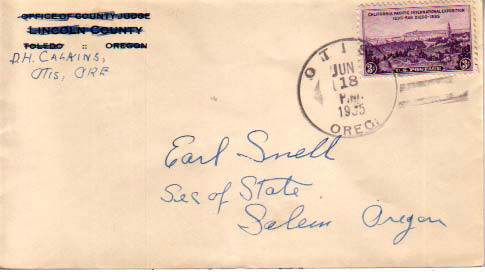 OFFICE OF COUNTY JUDGE
LINCOLN COUNTY
TOLEDO :: OREGON
D.H. CALKINS,
OTIS, ORE
CALIFORNIA PACIFIC INTERNATIONAL EXPOSITION
1935-SAN DIEGO-1935
3¢ U.S. POSTAGE 3¢
OTIS
JUN
18
P.M.
1935
OREG.
Earl Snell
Sec of State
Salem Oregon